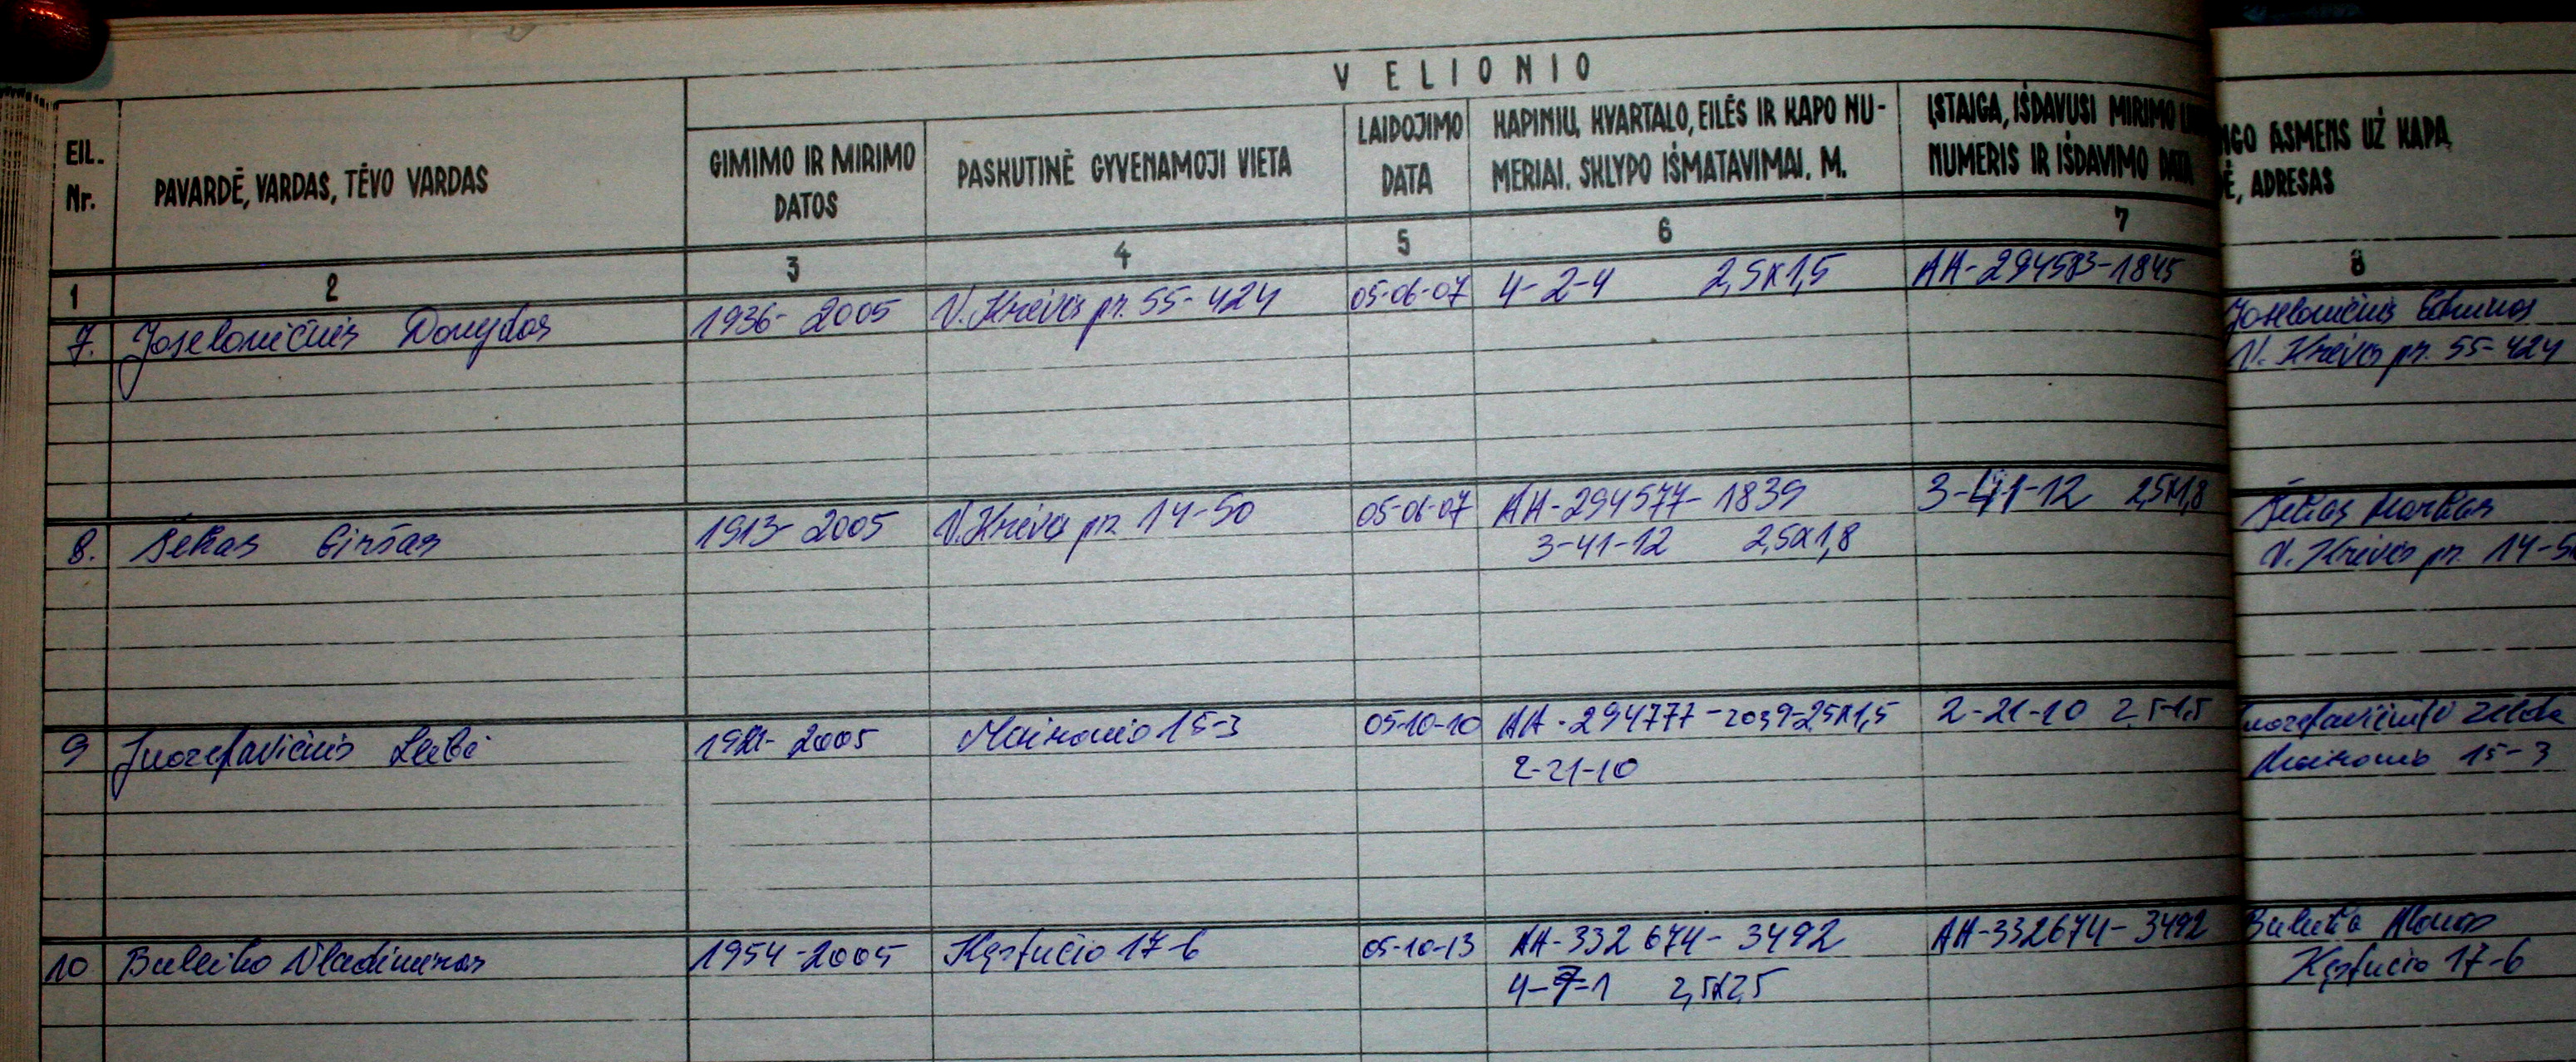 VELIONIO
EIL. Nr.
PAVARDĖ, VARDAS, TĖVO VARDAS
GIMIMO IR MIRIMO DATOS
PASKUTINĖ GYVENAMOJI VIETA
LAIDOJIMO DATA
KAPINIŲ, KVARTALO, EILĖS IR KAPO NU-
MERIAI. SKLYPO IŠMATAVIMAI. M.
ĮSTAIGA, IŠDAVUSI MIRIMO
NUMERIS IR IŠDAVIMO DATA
ASMENS UŽ KAPĄ,
ADRESAS
1 2 3 4 5 6 7 8
7. Joselovičius Dovydas 1936-2005 V. Krėvės pr. 55-424 05-06-07 4-2-4 2,5x1,5 AA-294583-1845 Joselovičius
V. Krėvės pr. 55-424
8. Šekas Giršas 1913-2005 V. Krėvės pr. 14-50 05-06-07 AA-294577-1839 3-41-12 2,5x1,8 Šekas Markas
3-41-12 2,5x1,8 V. Krėvės pr.
9 Juozefavičius Leibė 2005 Maironio 15-3 05-10-10 AA-294777-2039-2,5x1,5 2-21-10 2,5-1,5
2-21-10 Maironio 15-3
10 Buleiko Vladimiras 1954-2005 Kęstučio 17-6 05-10-13 AA-332674-3492 AA-332674-3492
4-7-1 2,5x2,5 Kęstučio 17-6